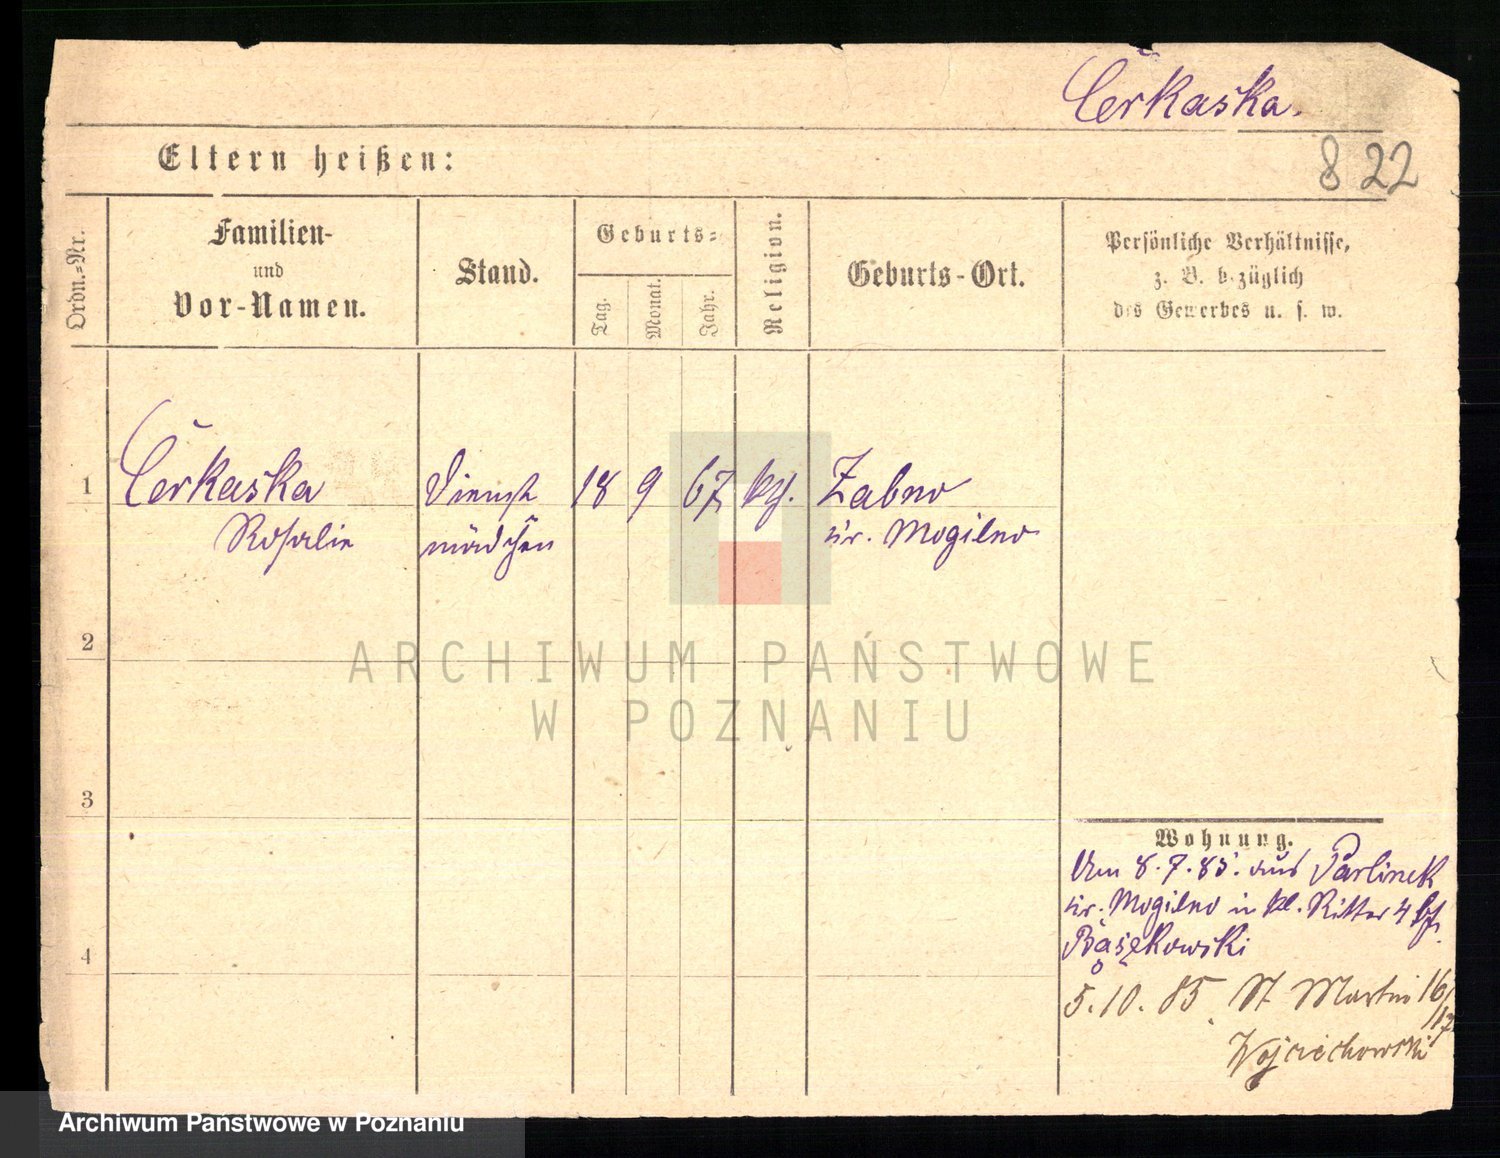 Cerkaska.
Eltern heißen:
8 22
Ordn.=Nr.
Familien-
und
Vor-Namen.
Stand.
Geburts=
Tag.
Monat.
Jahr.
Religion.
Geburts-Ort.
Persönliche Verhältnisse,
z. B. bezüglich
des Gewerbes u. s. w.
1 Cerkaska Dienst 18 9 67 Zabno
Rosalie mädchen Kr. Mogilno
2
ARCHIWUM PAŃSTWOWE
W POZNANIU
3
Wohnung.
Am 8.7.85. aus Parlinek
Kr. Mogilno in kl. Ritter 4
4
5.10.85. St Martin 16/17
Wojciechowski
Archiwum Państwowe w Poznaniu